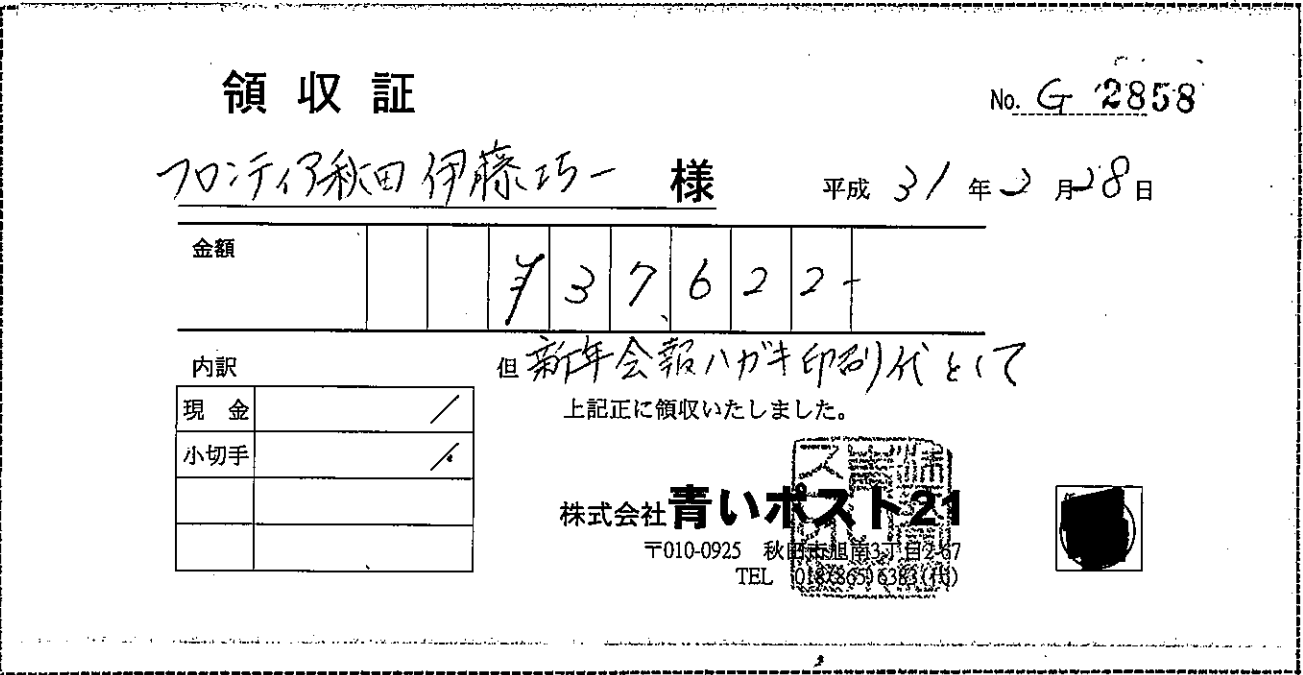 領収証
No. G 2858
フロンティア秋田 伊藤巧一 様
平成 31 年 2 月 28 日
金額 ¥37,622-
内訳
但 新年会報ハガキ印刷代として
現金 /
上記正に領収いたしました。
小切手 /
株式会社 青いポスト21
〒010-0925 秋田市旭南3丁目2-67
TEL 018(865)6383(代)